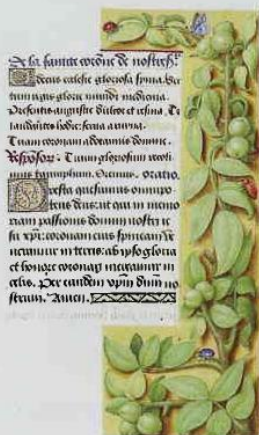 De la sainte corõne de nostre sr.
Decus caleste gloriosa spina. Be
tum agis glorie mundi medicina.
Presentis angustie diluos et resina. Te
laudantes hodie
Tuam coronam adoramus domine.
Respons. Tuam gloriosam recoli
mus tryumphum. Oremus. oratio.
Presta quesumus omnipo
tens deus: ut qui in memo
riam passionis domini nostri ie
su xpi: coronam eius spineam ve
neramur in terris: ab ipso gloria
et honore coronari mereamur in
celis. Per eundem xpm dnm no
strum. Amen.